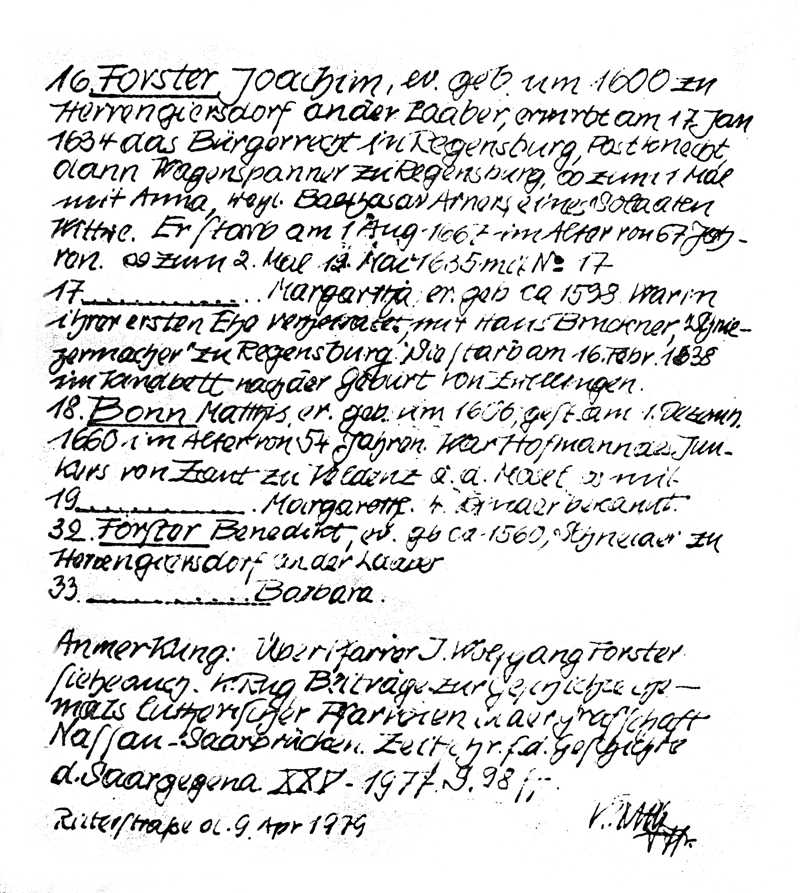 16. Forster Joachim, ev. geb. um 1600 zu
Herrengiersdorf an der Laaber, erwirbt am 17 Jan
1634 das Bürgerrecht in Regensburg, Postknecht,
dann Wagenspanner zu Regensburg, ∞ zum 1 Mal
mit Anna, weyl. Balthasar Arners, eines Soldaten
Wittwe. Er starb am 1 Aug. 1667 im Alter von 67 Jah-
ren. ∞ zum 2. Mal 12. Mai 1635 mit No 17
17............... Margaretha, ev. geb ca 1598. War in
ihrer ersten Ehe verheiratet, mit Hans Bruckner,
zu Regensburg. Sie starb am 16. Febr. 1638
im Kindbett nach der Geburt von Zwillingen.
18. Bonn Matthis, ev. geb. um 1606, gest. am 1. Dezemb.
1660 im Alter von 54 Jahren. War Hofmann des Jun-
kers von Zant zu Veldenz a. d. Mosel ∞ mit
19............... Margareth. 4 Kinder bekannt.
32. Forster Benedikt, ev. gb ca 1560, Schneider zu
Herrengiersdorf an der Laaber
33............... Barbara.
Anmerkung: Über Pfarrer J. Wolfgang Forster
siehe auch: Beiträge zur Geschichte ehe-
mals lutherischer Pfarreien in der Grafschaft
Nassau-Saarbrücken. Zeitschr. f. d. Geschichte
d. Saargegend XXV - 1977. S. 98 ff.
Ritterstraße d. 9. Apr 1979